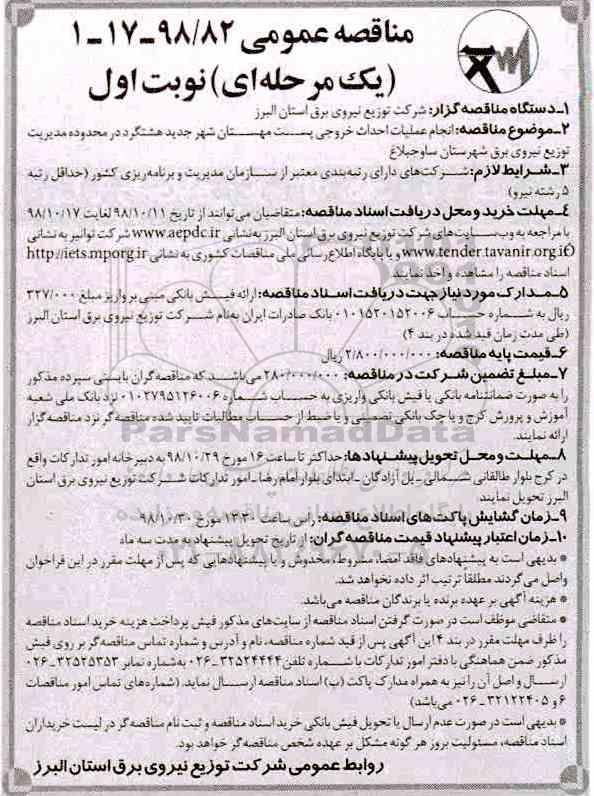 مناقصه عمومی ۹۸/۸۲-۱۷-۱
(یک مرحله‌ای) نوبت اول
۱-دستگاه مناقصه گزار: شرکت توزیع نیروی برق استان البرز
۲-موضوع مناقصه: انجام عملیات احداث خروجی پست مهستان شهر جدید هشتگرد در محدوده مدیریت
توزیع نیروی برق شهرستان ساوجبلاغ
۳-شرایط لازم: شرکت‌های دارای رتبه‌بندی معتبر از سازمان مدیریت و برنامه‌ریزی کشور (حداقل رتبه
۵ رشته نیرو)
۴-مهلت خرید و محل دریافت اسناد مناقصه: متقاضیان می‌توانند از تاریخ ۹۸/۱۰/۱۱ لغایت ۹۸/۱۰/۱۷
با مراجعه به وب‌سایت‌های شرکت توزیع نیروی برق استان البرز به‌نشانی www.aepdc.ir شرکت توانیر به نشانی
www.tender.tavanir.org.ir و یا پایگاه اطلاع‌رسانی ملی مناقصات کشوری به نشانی http://iets.mporg.ir
اسناد مناقصه را مشاهده و اخذ نمایند
۵-مدارک مورد نیاز جهت دریافت اسناد مناقصه: ارائه فیش بانکی مبنی بر واریز مبلغ ۳۲۷/۰۰۰
ریال به شماره حساب ۰۱۰۱۵۲۰۱۵۲۰۰۶ بانک صادرات ایران به‌نام شرکت توزیع نیروی برق استان البرز
(طی مدت زمان قید شده در بند ۴)
۶-قیمت پایه مناقصه: ۲/۸۰۰/۰۰۰/۰۰۰ ریال
۷-مبلغ تضمین شرکت در مناقصه: ۲۸۰/۰۰۰/۰۰۰ می‌باشد که مناقصه‌گران بایستی سپرده مذکور
را به صورت ضمانتنامه بانکی یا فیش بانکی واریزی به حساب شماره ۰۱۰۲۷۹۵۱۲۶۰۰۶ نزد بانک ملی شعبه
آموزش و پرورش کرج و یا چک بانکی تضمینی و یا ضبط از حساب مطالبات تایید شده مناقصه‌گر نزد مناقصه گزار
ارائه نمایند.
ParsNamadData
۸-مهلت و محل تحویل پیشنهادها: حداکثر تا ساعت ۱۶ مورخ ۹۸/۱۰/۲۹ به دبیرخانه امور تدارکات واقع
در کرج بلوار طالقانی شمالی-پل آزادگان-ابتدای بلوار امام رضا-امور تدارکات شرکت توزیع نیروی برق استان
البرز تحویل نمایند.
۹-زمان گشایش پاکت‌های اسناد مناقصه: راس ساعت ۱۳:۳۰ مورخ ۹۸/۱۰/۳۰
۱۰-زمان اعتبار پیشنهاد قیمت مناقصه گران: از تاریخ تحویل پیشنهاد به مدت سه ماه
* بدیهی است به پیشنهادهای فاقد امضا، مشروط، مخدوش و یا پیشنهادهایی که پس از مهلت مقرر در این فراخوان
واصل می‌گردند مطلقاً ترتیب اثر داده نخواهد شد.
* هزینه آگهی بر عهده برنده یا برندگان مناقصه می‌باشد.
* متقاضی موظف است در صورت گرفتن اسناد مناقصه از سایت‌های مذکور فیش پرداخت هزینه خرید اسناد مناقصه
را ظرف مهلت مقرر در بند ۴ این آگهی پس از قید شماره مناقصه، نام و آدرس و شماره تماس مناقصه‌گر بر روی فیش
مذکور ضمن هماهنگی با دفتر امور تدارکات با شماره تلفن ۳۲۵۲۴۴۴۴-۰۲۶ به شماره نمابر ۳۲۵۲۵۳۵۳-۰۲۶
ارسال و اصل آن را نیز به همراه مدارک پاکت (ب) اسناد مناقصه ارسال نماید. (شماره‌های تماس امور مناقصات
۶ و ۳۲۱۲۲۴۰۵-۰۲۶ می‌باشد)
* بدیهی است در صورت عدم ارسال یا تحویل فیش بانکی خرید اسناد مناقصه و ثبت نام مناقصه گر در لیست خریداران
اسناد مناقصه، مسئولیت بروز هر گونه مشکل بر عهده شخص مناقصه‌گر خواهد بود.
روابط عمومی شرکت توزیع نیروی برق استان البرز